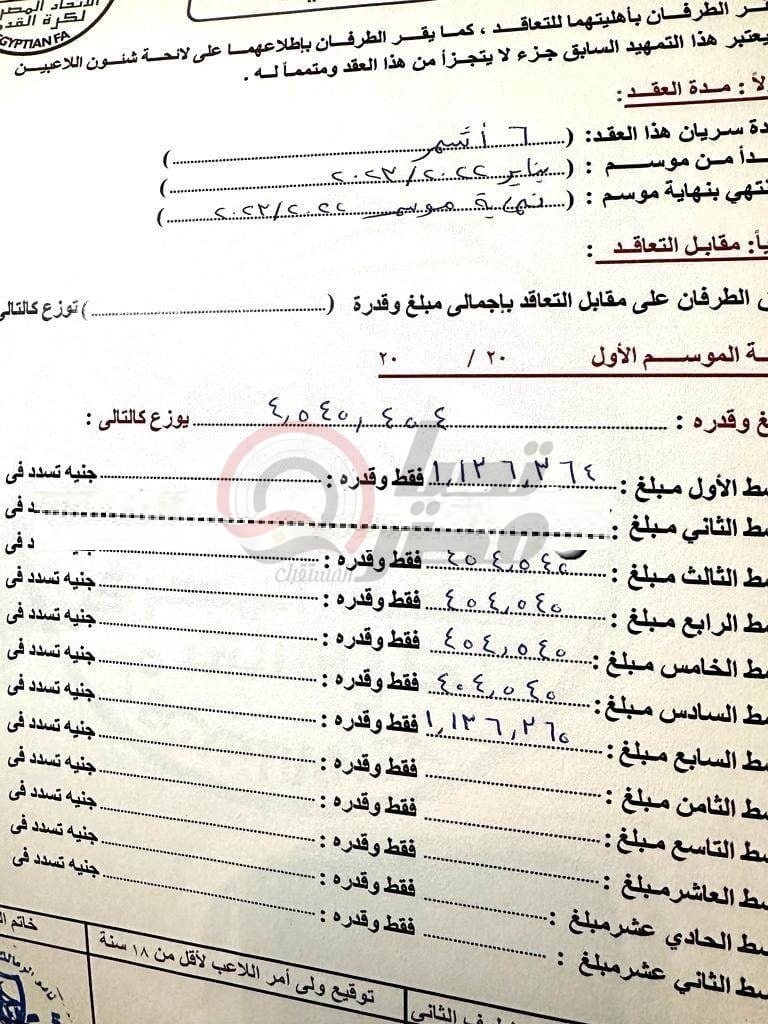 الاتحاد المصرى
لكرة القدم
EGYPTIAN FA
قر الطرفان بأهليتهما للتعاقد ، كما يقر الطرفان بإطلاعهما على لائحة شئون اللاعبين
يعتبر هذا التمهيد السابق جزء لا يتجزأ من هذا العقد ومتمماً له .
لاً : مدة العقد :
دة سريان هذا العقد: ( ٦ أشهر )
دأ من موسم : ( يناير ٢٠٢٢/٢٠٢٣ )
نتهي بنهاية موسم : ( نهاية موسم ٢٠٢٢/٢٠٢٣ )
ياً: مقابل التعاقد :
ق الطرفان على مقابل التعاقد بإجمالى مبلغ وقدرة ( ) توزع كالتالى
ة الموسم الأول ٢٠ / ٢٠
غ وقدره : ٤,٥٤٥,٤٥٤ يوزع كالتالى :
تحيا مصر
المستقبل
سط الأول مبلغ : ١,١٣٦,٣٦٤ فقط وقدره : جنيه تسدد فى
سط الثاني مبلغ : د فى
سط الثالث مبلغ : ٤٥٤,٥٤٥ فقط وقدره : د فى
سط الرابع مبلغ : ٤٥٤,٥٤٥ فقط وقدره : جنيه تسدد فى
سط الخامس مبلغ : ٤٥٤,٥٤٥ فقط وقدره : جنيه تسدد فى
سط السادس مبلغ : ٤٥٤,٥٤٥ فقط وقدره : جنيه تسدد فى
سط السابع مبلغ : ١,١٣٦,٢٦٥ فقط وقدره : جنيه تسدد فى
سط الثامن مبلغ : فقط وقدره : جنيه تسدد فى
سط التاسع مبلغ : فقط وقدره : جنيه تسدد فى
سط العاشر مبلغ : فقط وقدره : جنيه تسدد فى
سط الحادي عشر مبلغ : فقط وقدره : جنيه تسدد فى
سط الثاني عشر مبلغ : فقط وقدره : جنيه تسدد فى
طرف الثانى
توقيع ولى أمر اللاعب لأقل من ١٨ سنة
خاتم
نادى الزمالك